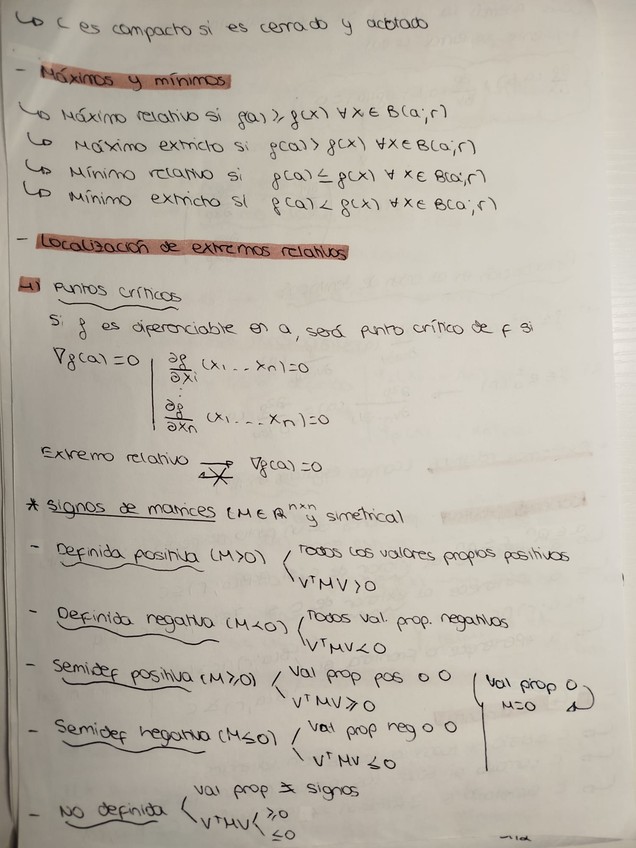 ↳ C es compacto si es cerrado y acotado
- Máximos y mínimos
↳ Máximo relativo si f(a) ≥ f(x) ∀x ∈ B(a;r)
↳ Máximo extricto si f(a) > f(x) ∀x ∈ B(a;r)
↳ Mínimo relativo si f(a) ≤ f(x) ∀ x ∈ B(a;r)
↳ Mínimo extricto si f(a) < f(x) ∀x ∈ B(a;r)
- Localización de extremos relativos
Puntos críticos
Si f es diferenciable en a, será punto crítico de f si
∇f(a)=0 | ∂f/∂xi (x1...xn)=0
⋮
∂f/∂xn (x1...xn)=0
Extremo relativo ⇄̸ ∇f(a)=0
* Signos de matrices (M ∈ R^n×n y simétrica)
- Definida positiva (M>0) / Todos los valores propios positivos
\ VᵀMV>0
- Definida negativa (M<0) / Todos val. prop. negativos
\ VᵀMV<0
- Semidef positiva (M≥0) / Val prop pos o 0 (Val prop 0
\ VᵀMV≥0 M=0
- Semidef negativa (M≤0) / Val prop neg o 0
\ VᵀMV≤0
- NO definida < Val prop ≠ signos
VᵀMV < ≥0
≤0